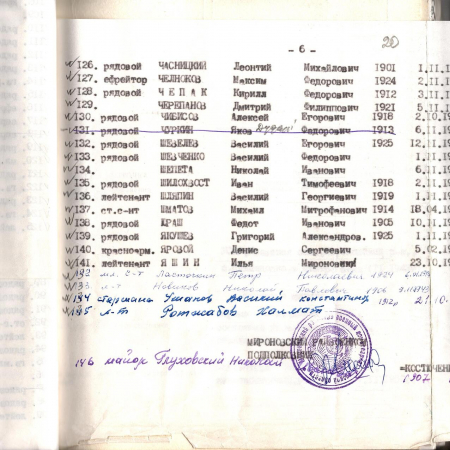 - 6 -
20
126. рядовой ЧАСНИЦКИЙ Леонтий Михайлович 1901 1.II.19
127. ефрейтор ЧЕЛНОКОВ Максим Федорович 1924 2.II.19
128. рядовой ЧЕПАК Кирилл Федорович 1912 3.II.1
129. ЧЕРЕПАНОВ Дмитрий Филиппович 1921 5.II
130. рядовой ЧИБИСОВ Алексей Егорович 1918 2.10.19
131. рядовой ЧУРКИН Яков Федорович 1913 6.II.19
132. рядовой ШЕВЕЛЕВ Василий Егорович 1925 12.II.19
133. рядовой ШЕВЧЕНКО Василий Федорович 1.II.19
134. ШЕПЕТА Николай Иванович 6.II.19
135. рядовой ШИЛОХВОСТ Иван Тимофеевич 1918 2.II.19
136. лейтенант ШЛЯПИН Василий Георгиевич 1919 1.II.19
137. ст.с-нт ШМАТОВ Михаил Митрофанович 1914 18.04.19
138. рядовой КРАШ Федот Иванович 1905 10.II.19
139. рядовой Григорий Александров. 1925 1.II.19
140. красноарм. ЯРОВОЙ Денис Сергеевич 5.02.19
141. лейтенант ЯШИН Илья Миронович 23.10.19
Петр Николаевич 1924
Новиков Николай Павлович
старшина Ушаков Василий константин 21.10.
л-т Халмат
МИРОНОВСКИЙ
ПОДПОЛКОВНИК
146 майор Глуховский Николай
1907